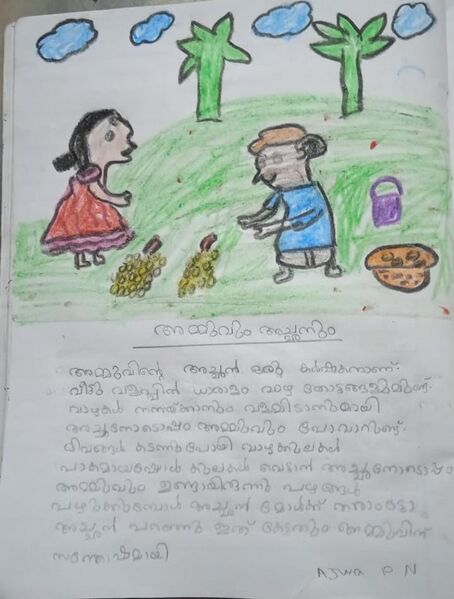 അമ്മുവും അച്ഛനും
അമ്മുവിന്റെ അച്ഛൻ ഒരു കർഷകനാണ്.
വീട്ടു വളപ്പിൽ ധാരാളം വാഴ തോട്ടങ്ങളുമുണ്ട്.
വാഴകൾ നനയ്ക്കാനും വളമിടാനുമായി
അച്ഛനോടൊപ്പം അമ്മുവും പോവാറുണ്ട്.
ദിവസങ്ങൾ കടന്നുപോയി വാഴക്കുലകൾ
പാകമായപ്പോൾ കുലകൾ വെട്ടാൻ അച്ഛനോടൊപ്പം
അമ്മുവും ഉണ്ടായിരുന്നു പഴങ്ങൾ
പഴുക്കുമ്പോൾ അച്ഛൻ മോൾക്ക് തരാംട്ടോ
അച്ഛൻ പറഞ്ഞു ഇത് കേട്ടതും അമ്മുവിന്
സന്തോഷമായി
AJWA P N